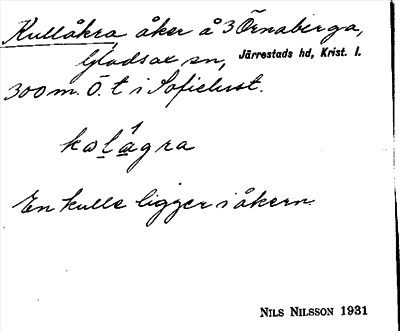 Kullåkra åker å 3 Örnaberga,
Gladsax sn, Järrestads hd, Krist. l.
300 m. Ö. t i Sofielust.
kalågra
En kulle ligger i åkern.
NILS NILSSON 1931